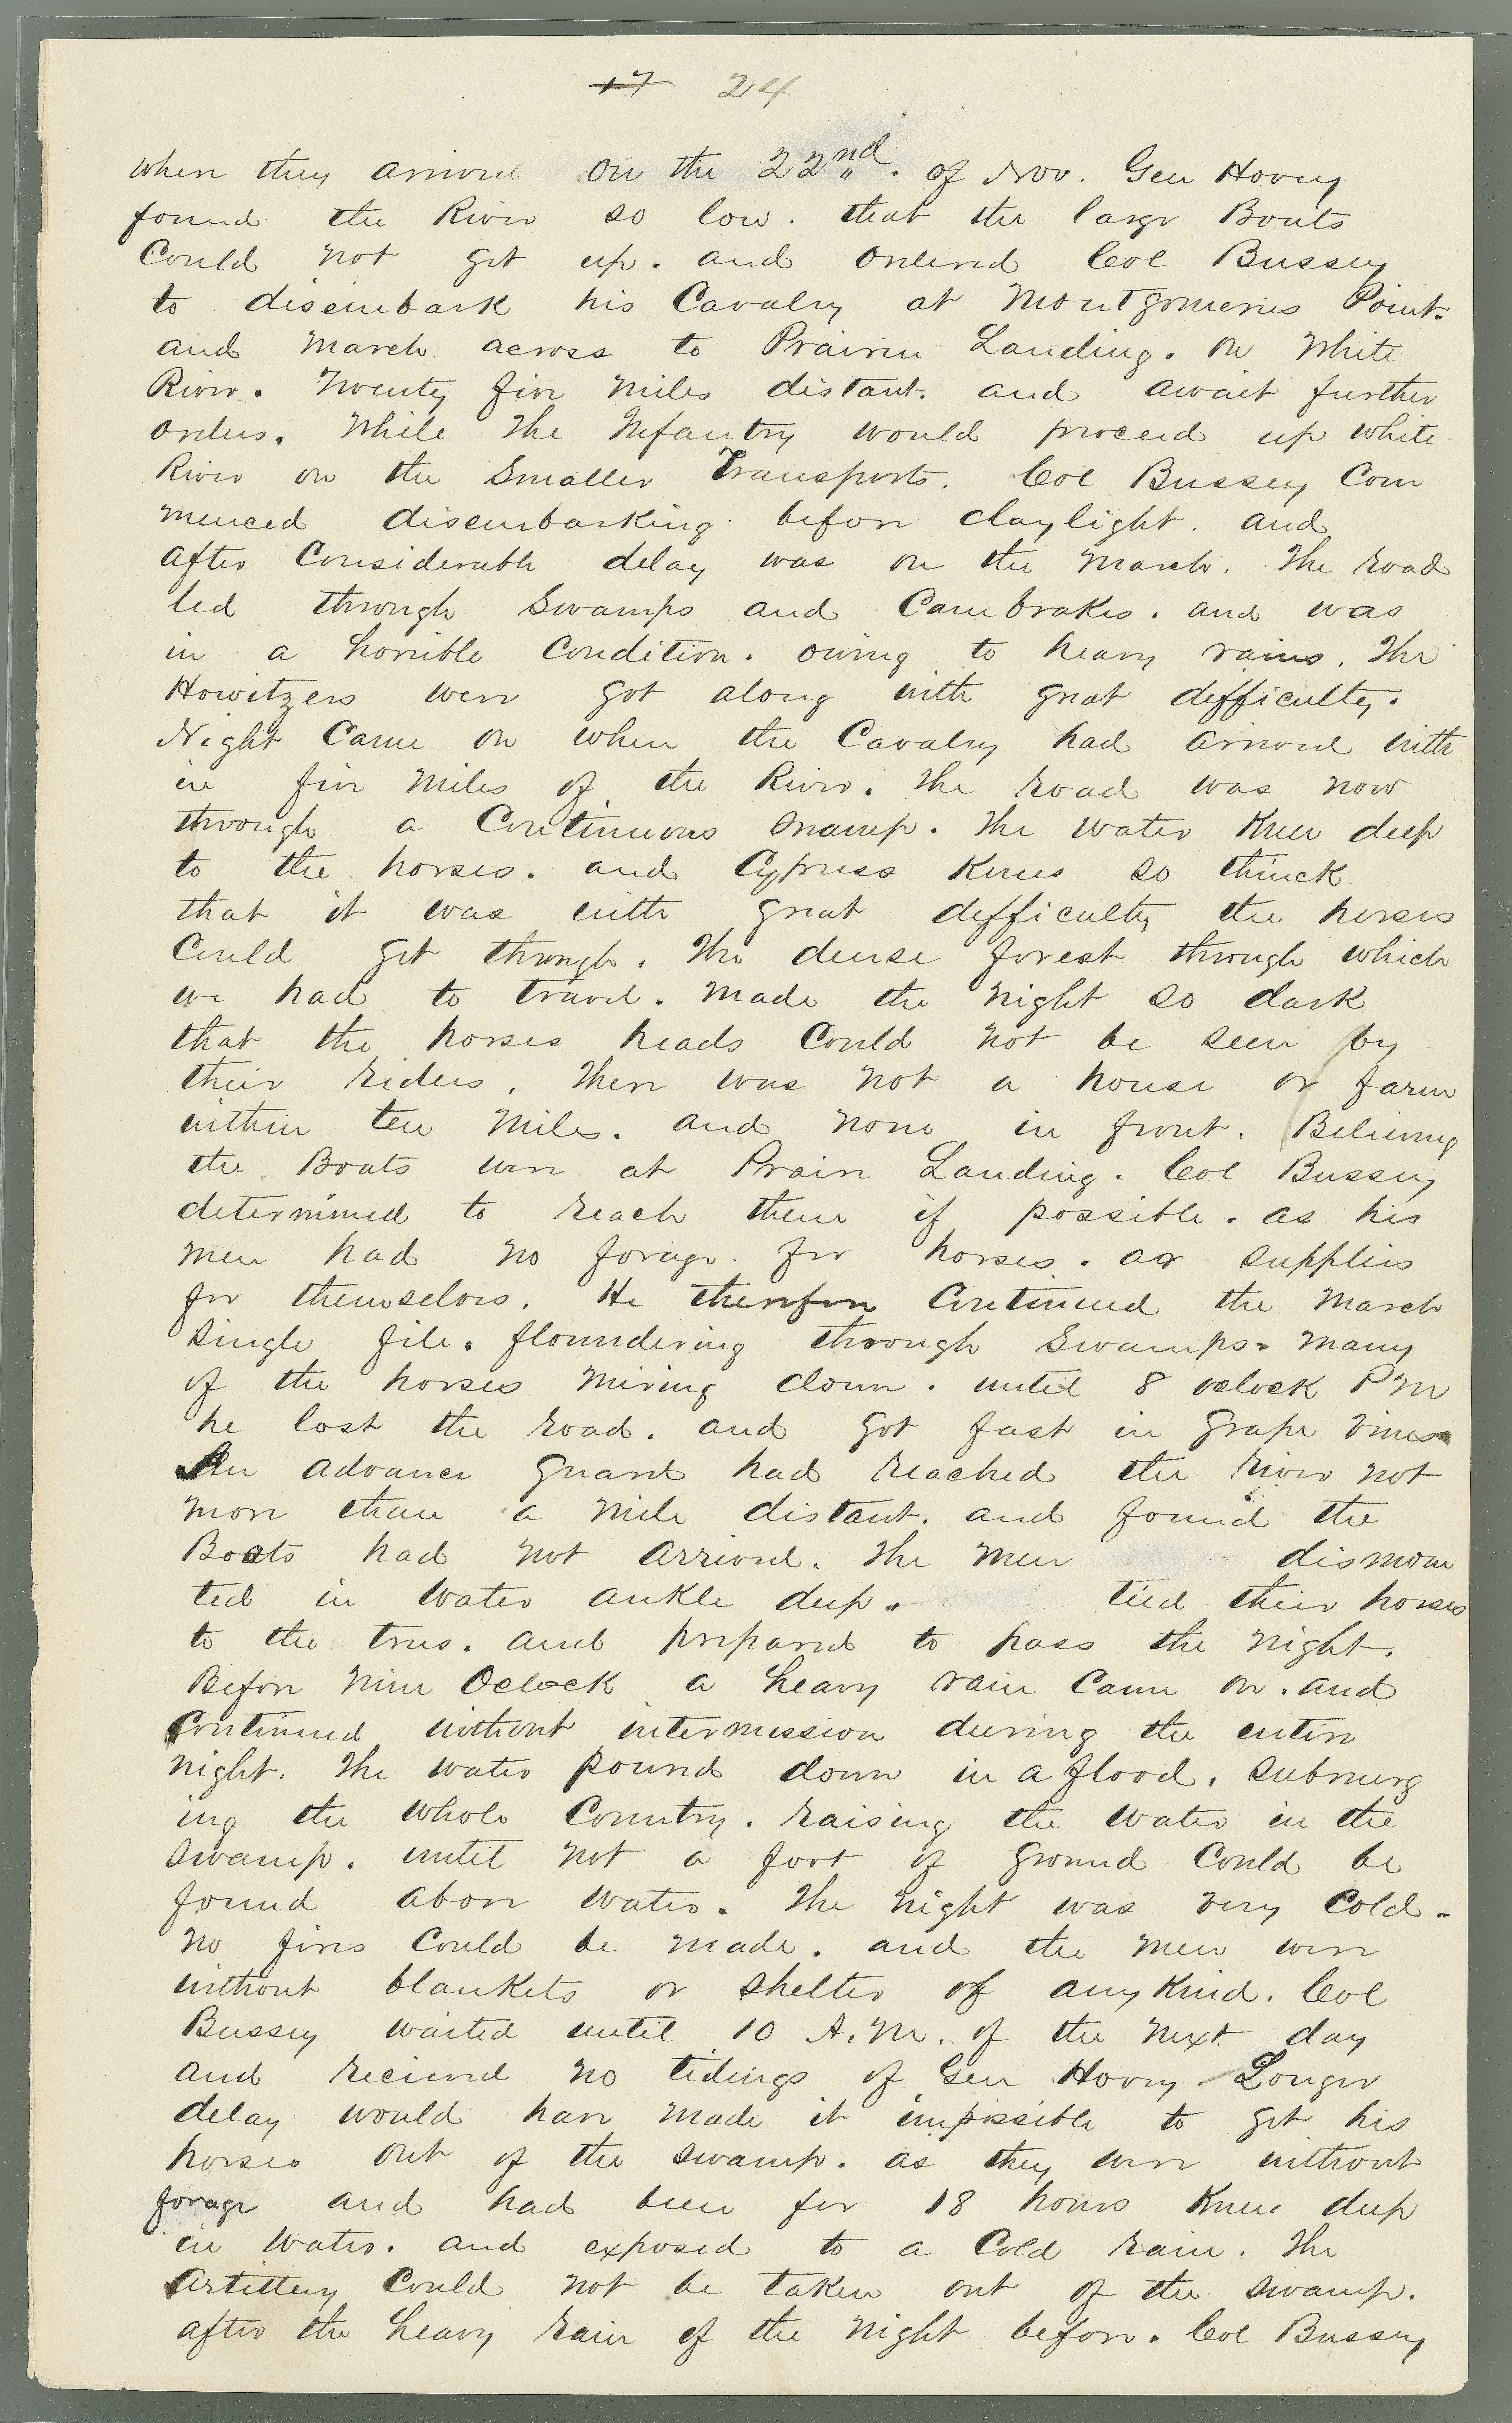 17 24
when they arrived on the 22nd. of Nov. Gen Hovey
found the River so low. that the large Boats
Could not get up. and ordered Col Bussey
to disembark his Cavalry at Montgomeries Point.
and March across to Prairie Landing. on White
River. Twenty five Miles distant. and await further
orders. While the Infantry would proceed up White
River on the Smaller Transports. Col Bussey Com
menced disembarking before daylight. and
after Considerable delay was on the March. The road
led through Swamps and Canebrakes. and was
in a horrible Condition. owing to heavy rains. The
Howitzers were got along with great difficulty.
Night Came on when the Cavalry had arrived with
in five Miles of the River. The road was now
through a Continuous swamp. The water Knee deep
to the horses. and Cypress Knees so thinck
that it was with great difficulty the horses
Could get through. The dense forest through which
we had to travel. Made the Night so dark
that the horses heads Could Not be seen by
their riders. There was Not a house or farm
within ten Miles. and none in front. Believing
the Boats were at Prairie Landing. Col Bussey
determined to reach them if possible. as his
men had no forage. for horses. or supplies
for themselves. He therefore Continued the March
single file. floundering through Swamps. Many
of the horses Miring down. until 8 oclock PM
he lost the road. and got fast in Grape Vines
An advance Guard had reached the River not
more than a Mile distant. and found the
Boats had Not Arrived. The Men dismoun
ted in Water ankle deep. tied their horses
to the trees. and prepared to pass the Night.
Before Nine Oclock a heavy rain Came on. and
Continued without intermission during the entire
night. The water poured down in a flood. submerg
ing the whole Country. raising the Water in the
swamp. until Not a foot of Ground Could be
found above water. The Night was very Cold.
No fires Could be made. and the Men were
without blankets or shelter of any Kind. Col
Bussey waited until 10 A.M. of the Next day
and recieved no tidings of Gen Hovey. Longer
delay would have Made it impossible to get his
horses out of the swamp. as they were without
forage and had been for 18 hours Knee deep
in Water. and exposed to a Cold rain. The
Artillery Could Not be taken out of the swamp.
after the heavy rain of the Night before. Col Bussey